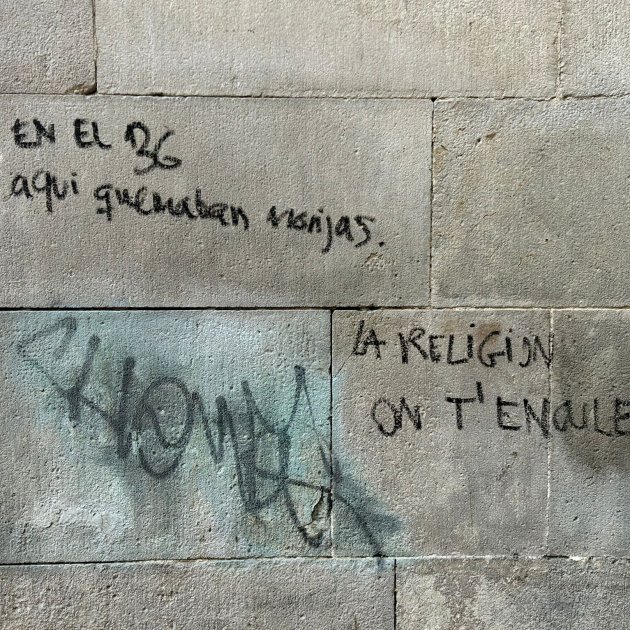 EN EL 36
aquí quemaban monjas.
LA RELIGION
ON T'ENCULE